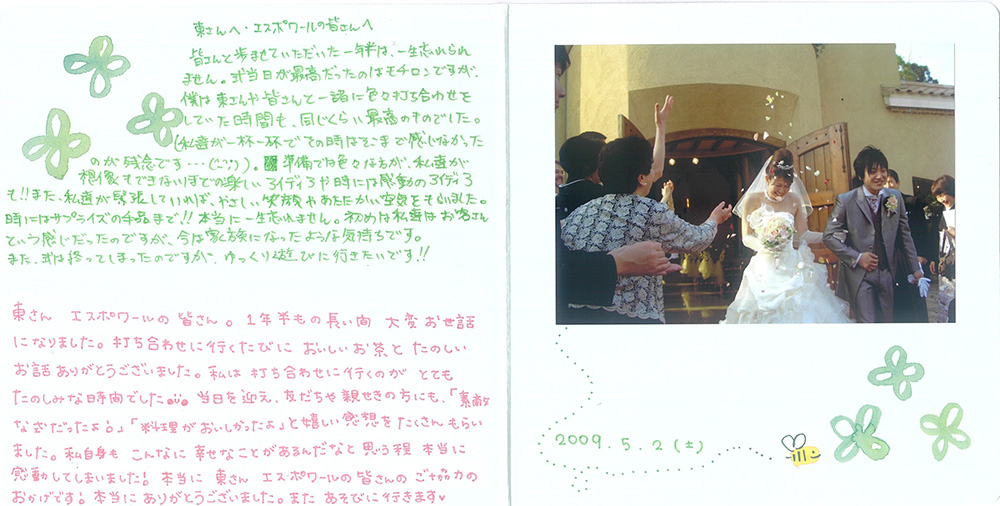 東さんへ・エスポワールの皆さんへ
皆さんと歩ませていただいた一年半は、一生忘れられ
ません。式当日が最高だったのはモチロンですが、
僕は東さんや皆さんと一緒に色々打ち合わせを
していた時間も、同じくらい最高のものでした。
(私達が一杯一杯でその時はそこまで感じなかった
のが残念です・・・
準備では色々な方が、私達が
想像もできないほどの楽しいアイディアや時には感動のアイディア
も!!また、私達が緊張していれば、やさしい笑顔やあたたかい空気をもらいました。
時にはサプライズの手品まで!!本当に一生忘れません。初めは私達はお客さん
という感じだったのですが、今は家族になったような気持ちです。
また、式は終ってしまったのですが、ゆっくり遊びに行きたいです!!
東さん エスポワールの皆さん。1年半もの長い間 大変お世話
になりました。打ち合わせに行くたびに おいしいお茶と たのしい
お話ありがとうございました。私は打ち合わせに行くのが とても
たのしみな時間でした。 当日を迎え、友だちや親せきの方にも、「素敵
な式だったよ!」「料理がおいしかったよ」と嬉しい感想をたくさんもらい
ました。私自身も こんなに幸せなことがあるんだなと思う程 本当に
感動してしまいました!本当に 東さん エスポワールの皆さんの ご協力の
おかげです!本当に ありがとうございました。また あそびに行きます♥
2009.5.2(土)